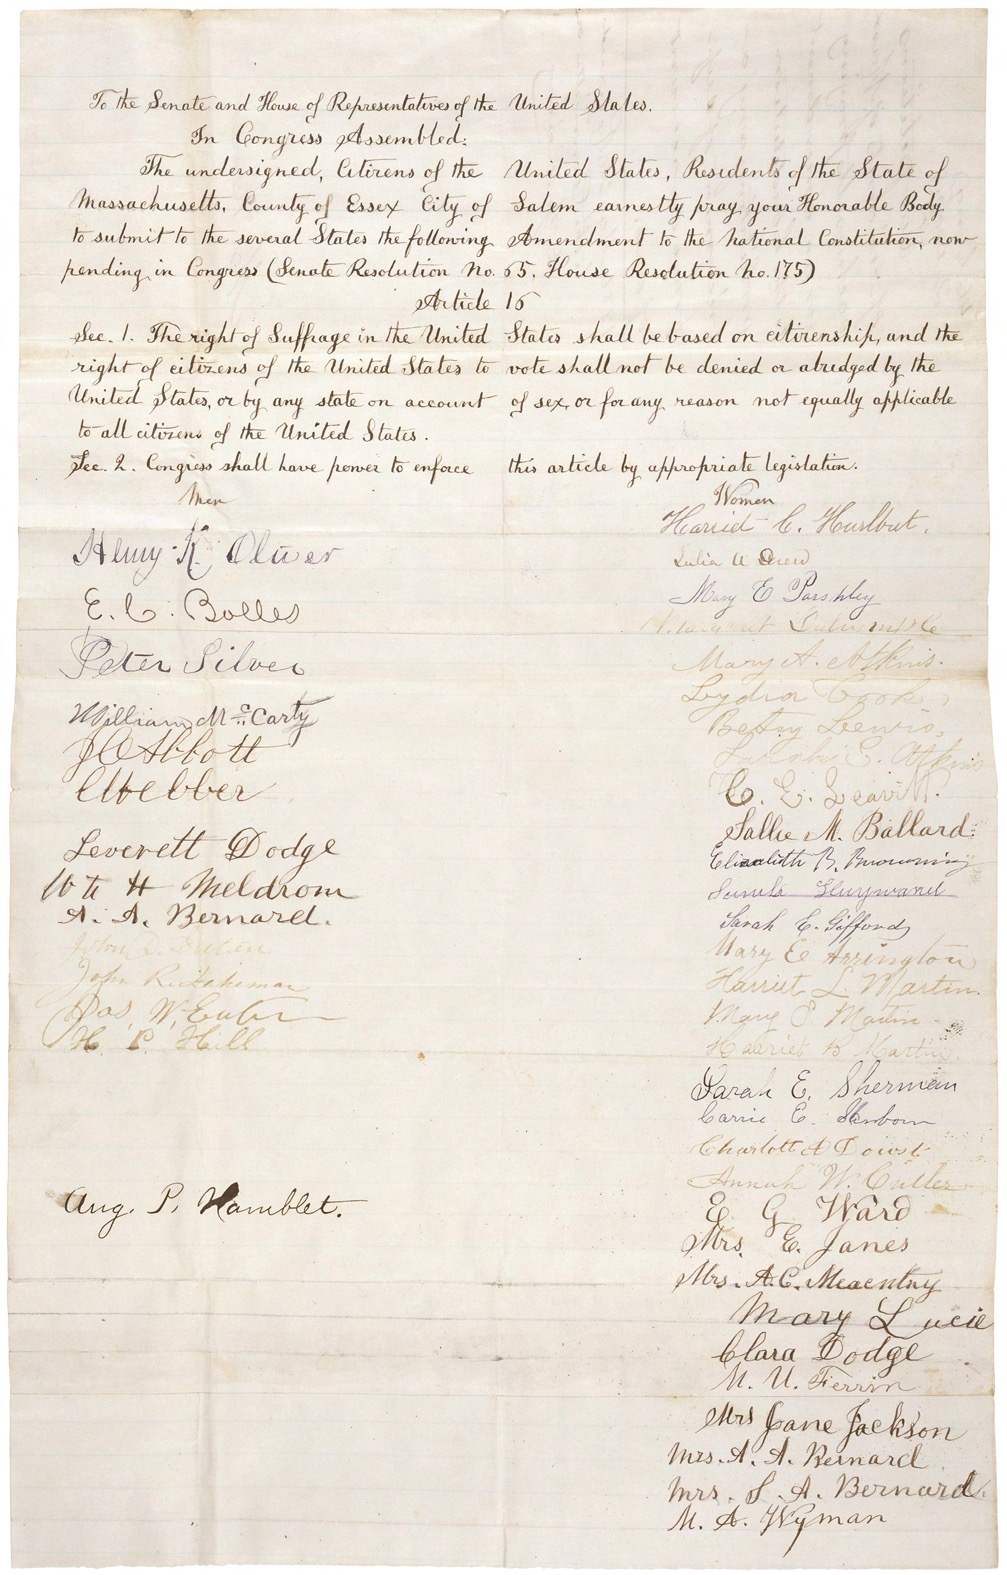 To the Senate and House of Representatives of the United States.
In Congress Assembled:
The undersigned, Citizens of the United States, Residents of the State of
Massachusetts, County of Essex City of Salem earnestly pray your Honorable Body
to submit to the several States the following Amendment to the National Constitution, now
pending in Congress (Senate Resolution No. 65. House Resolution No. 175)
Article 16
Sec. 1. The right of Suffrage in the United States shall be based on citizenship, and the
right of citizens of the United States to vote shall not be denied or abridged by the
United States, or by any state on account of sex, or for any reason not equally applicable
to all citizens of the United States.
Sec. 2. Congress shall have power to enforce this article by appropriate legislation.
Men
Henry K. Oliver
E. C. Bolles
Peter Silver
William McCarty
J C Abbott
C Webber
Leverett Dodge
Wm H Meldrom
A. A. Bernard.
John
Jas. W.
H. P. Hill
Aug. P. Hamblet.
Women
Harriet C. Hurlbut.
Julia A Drew
Mary E Parshley
Margaret
Mary A. Atkins.
Lydia Cook,
Betsy Lewis,
Sarah E. Atkins
C. E. Leavitt.
Sallie M. Ballard.
Elizabeth B. Browning
Sarah E. Gifford
Mary E Arrington
Harriet L. Martin.
Mary E Martin
Harriet B Martin.
Sarah E. Sherman
Carrie E.
Charlotte A Dowst
Annah W. Cutler
E. G Ward
Mrs. E. Janes
Mrs. A. C.
Mary
Clara Dodge
M. U. Ferrin
Mrs Jane Jackson
Mrs. A. A. Bernard
Mrs. S. A. Bernard.
M. A. Wyman